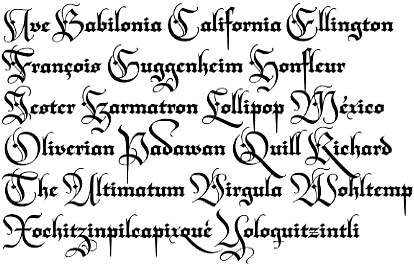 Ave Babilonia California Ellington
François Guggenheim Honfleur
Jester Karmatron Lollipop México
Oliverian Padawan Quill Richard
The Ultimatum Virgula Wohltemp
Xochitzinpilcapixqué Yoloquitzintli